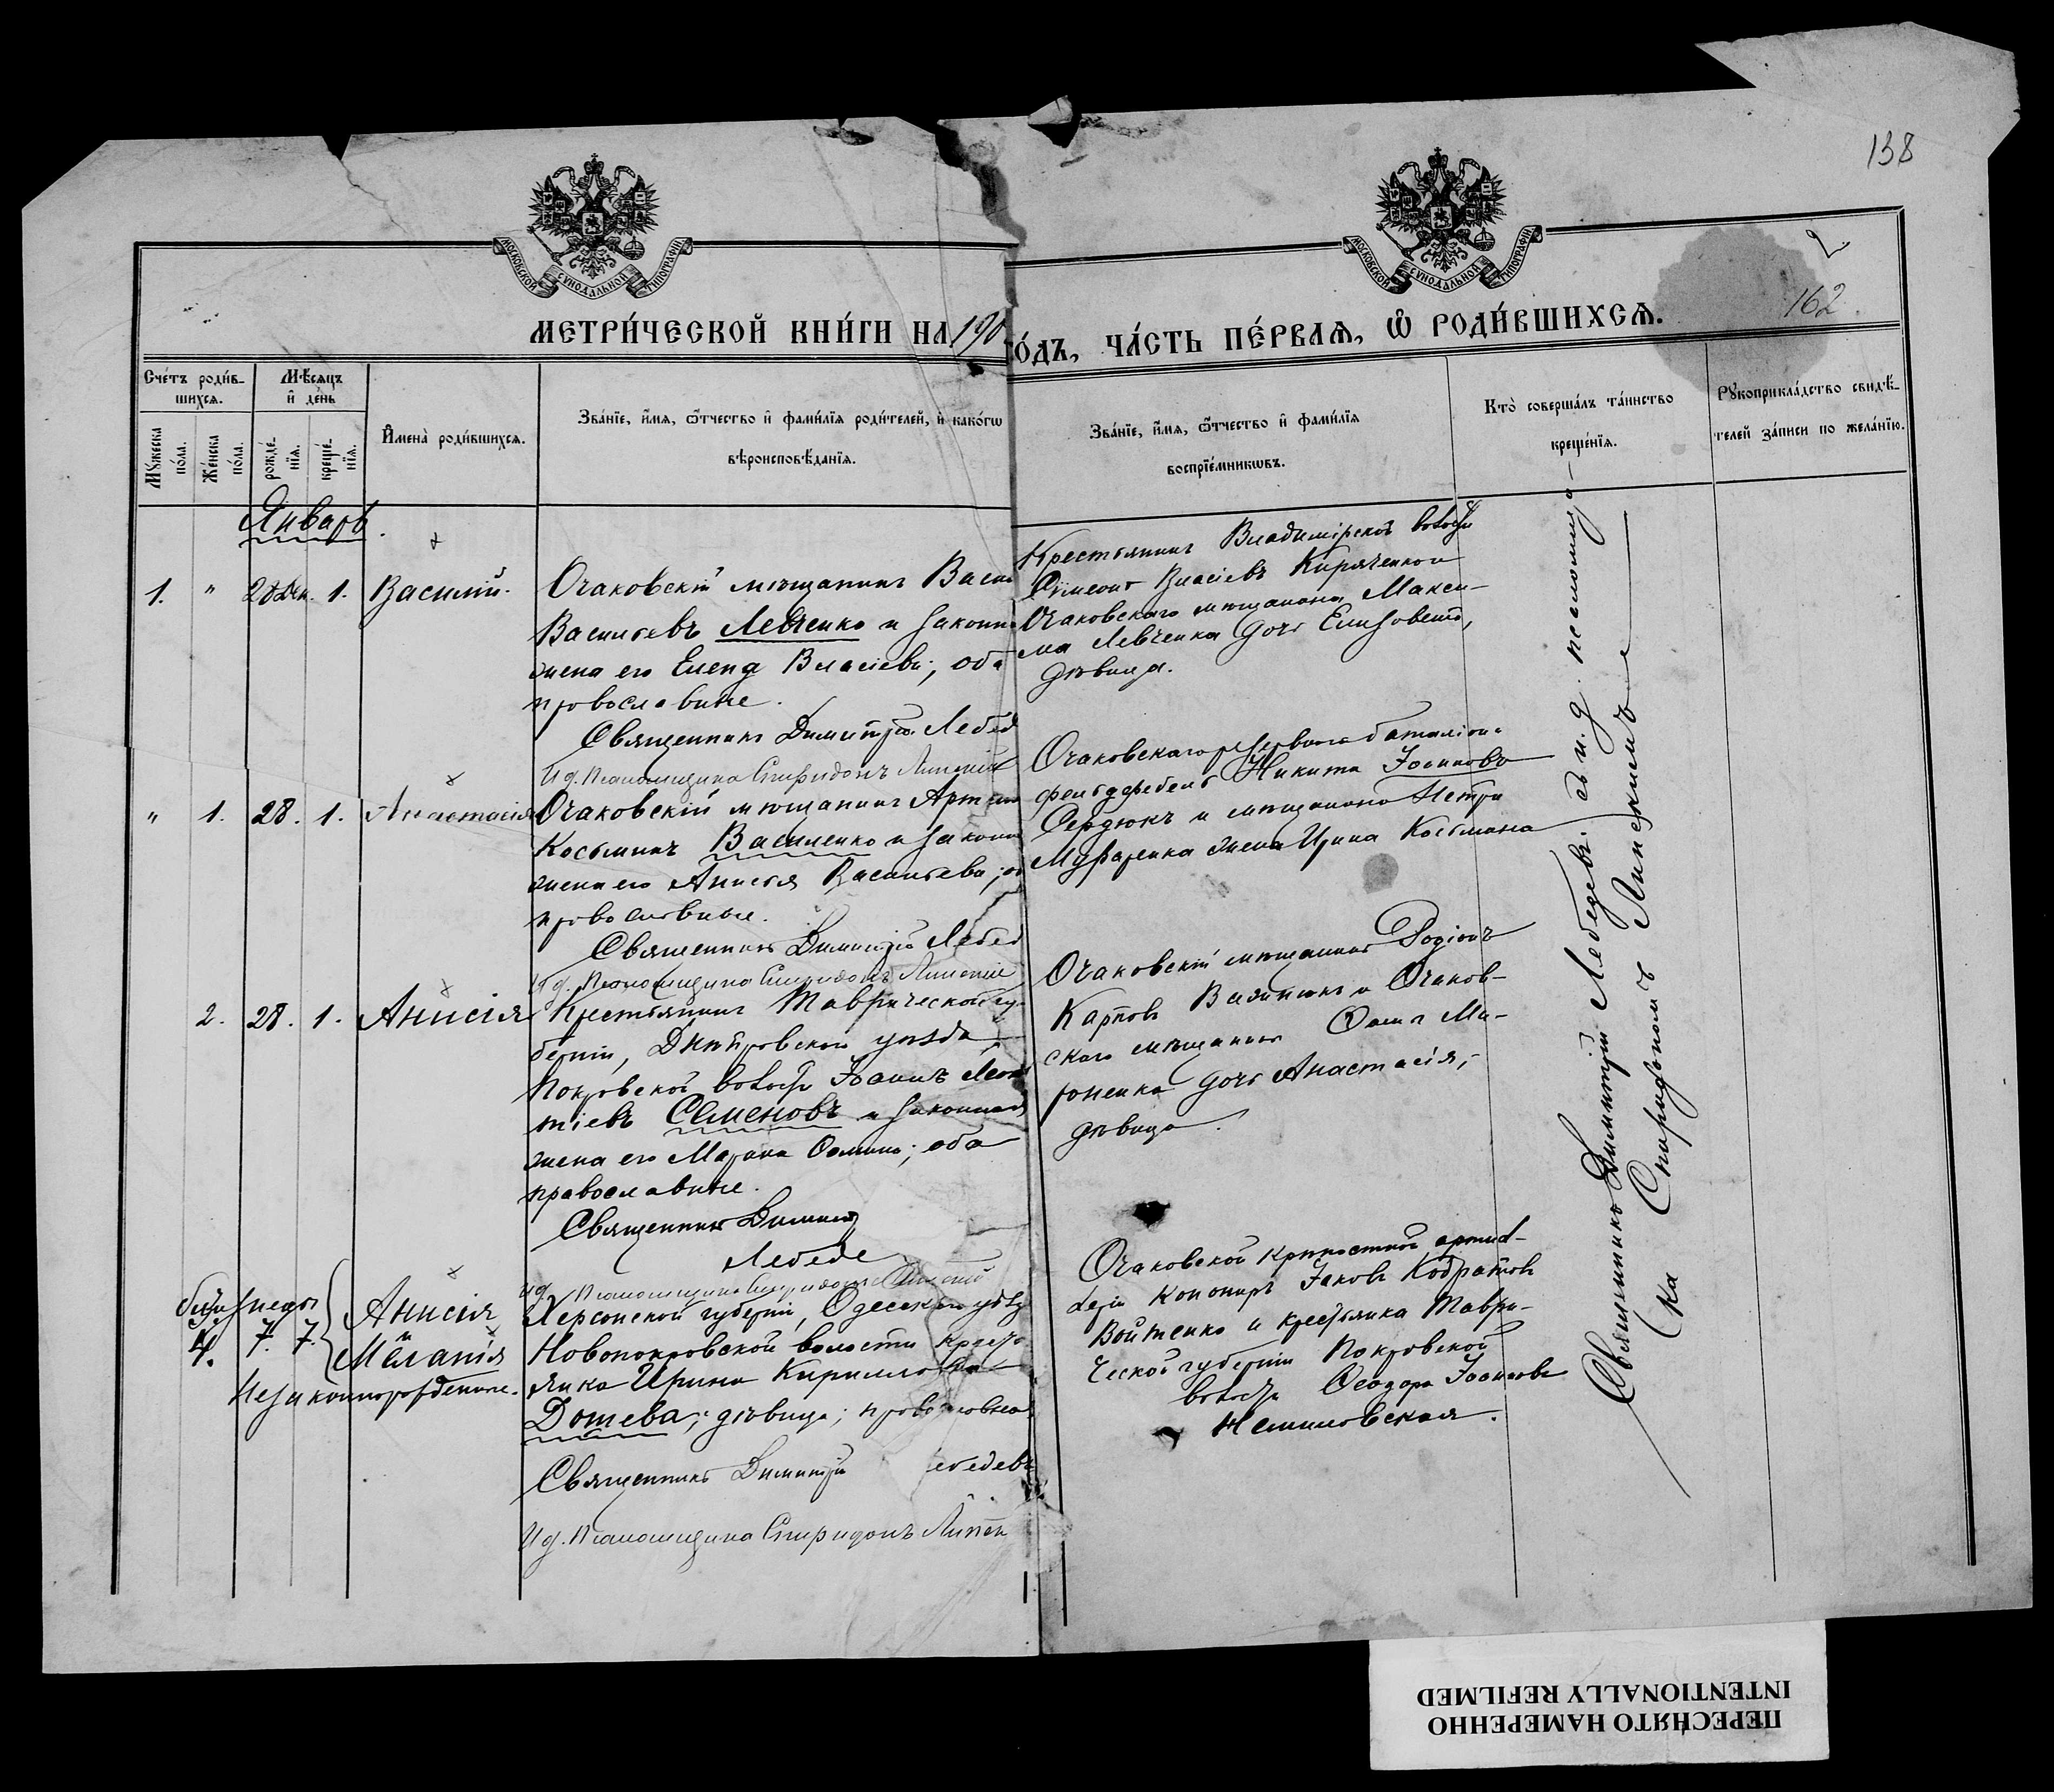 138
2
162
МОСКОВСКОЙ СѴНОДАЛЬНОЙ ТИПОГРАФІИ
МОСКОВСКОЙ СѴНОДАЛЬНОЙ ТИПОГРАФІИ
МЕТРИ́ЧЕСКОЙ КНИ́ГИ НА 190
ГО́ДЪ, ЧА́СТЬ ПЕ́РВАѦ, Ѡ҆ РОДИ́ВШИХСѦ.
Сче́тъ роди́в-
шихсѧ.
Мѣ́сѧцъ
и҆ де́нь
Мꙋ́жеска
по́ла.
Же́нска
по́ла.
рожде́-
нїѧ.
креще́-
нїѧ.
И҆мена̀ роди́вшихсѧ.
Зва́нїе, и҆́мѧ, ѻ҆́тчество и҆ фами́лїѧ роди́телей, и҆ како́гѡ
вѣроисповѣ́данїѧ.
Зва́нїе, и҆́мѧ, ѻ҆́тчество и҆ фами́лїѧ
воспрїе́мникѡвъ.
Кто̀ соверша́лъ та́инство
креще́нїѧ.
Рꙋкоприкла́дство свидѣ́-
телей за́писи по жела́нїю.
Январь.
1. " 28 Дек. 1. Василій.
Очаковскій мѣщанинъ Васи
Васильевъ Левченко и законн
жена его Елена Власіева; оба
православные.
Священникъ Димитрій Лебед
И д. Псаломщика Спиридонъ Липскій
Крестьянинъ Владимірской волости
Симеонъ Власіевъ Кириченко и
Очаковскаго мѣщанина Макси-
ма Левченка дочь Елисовета,
дѣвица.
" 1. 28. 1. Анастасія
Очаковскій мѣщанинъ Артем
Косьминъ Василенко и законн
жена его Анисія Васильева; об
православные.
Священникъ Димитрій Лебед
И д. Псаломщика Спиридонъ Липскій
Очаковскаго резервнаго баталіона
фельдфебель Никита Іосиповъ
Сердюкъ и мѣщанина Петра
жена Ирина Косьмина
2. 28. 1. Анисія
Крестьянинъ Таврической гу-
берніи, Днѣпровскаго уѣзда,
Покровской волости Іоаннъ Леон
тіевъ Семеновъ и законная
жена его Марина Ѳомина; оба
православные.
Священникъ Димит
Лебеде
И д. Псаломщика Спиридонъ Липскій
Очаковскій мѣщанинъ Родіонъ
Карповъ и Очаков-
скаго мѣщанина Ѳомы Ми-
роненка дочь Анастасія,
дѣвица.
близнецы
4. 7. 7. Анисія
и
Меланія
Незаконнорожденные.
Херсонской губерніи, Одесскаго уѣзд
Новопокровской волости крест
янка Ирина Кириллова
Дотева, дѣвица; православная
Священникъ Димитрій ебедевъ
И д. Псаломщика Спиридонъ Липск
Очаковской крѣпостной артил-
леріи Іаковъ Кодратовъ
Войтенко и крестьянка Таври-
ческой губерніи Покровской
волости Ѳеодора Іоаннова
Священникъ Димитрій Лебедевъ съ и. д. псаломщи-
ка Спиридономъ Липскимъ
ПЕРЕСНЯТО НАМЕРЕННО
INTENTIONALLY REFILMED